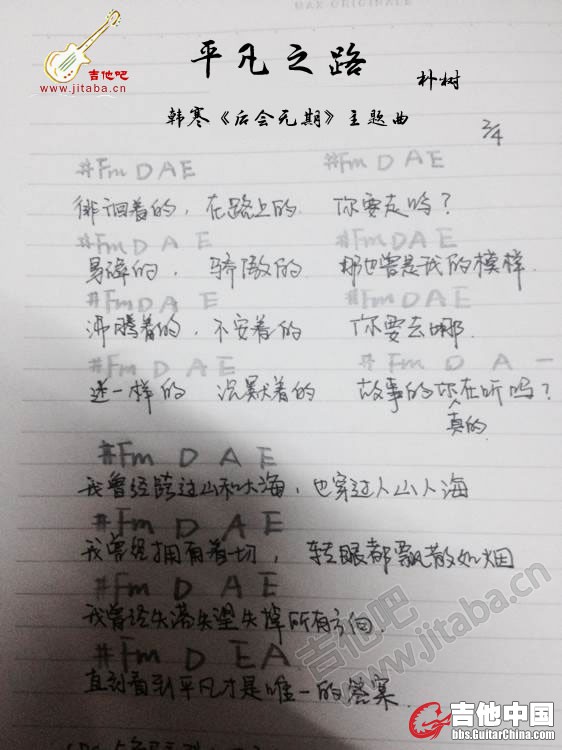 MAX ORIGINALE
吉他吧
www.jitaba.cn
平凡之路
朴树
韩寒《后会无期》主题曲
3/4
#Fm D A E #Fm D A E
徘徊着的，在路上的 你要走吗？
#Fm D A E #Fm D A E
易碎的，骄傲的 那也曾是我的模样
#Fm D A E #Fm D A E
沸腾着的，不安着的 你要去哪
#Fm D A E #Fm D A -
迷一样的 沉默着的 故事的你在听吗？
真的
#Fm D A E
我曾经跨过山和大海，也穿过人山人海
#Fm D A E
我曾经拥有着切，转眼都飘散如烟
#Fm D A E
我曾经失落失望失掉所有方向
#Fm D E A
直到看到平凡才是唯一的答案
吉他吧
www.jitaba.cn
吉他中国
bbs.GuitarChina.com